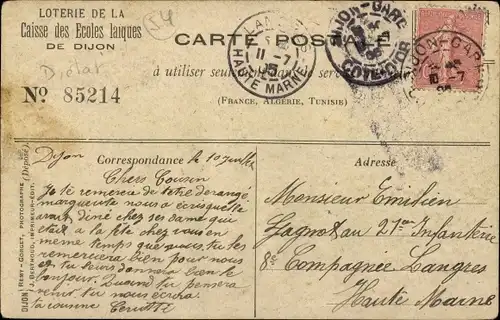 LOTERIE DE LA
Caisse des Ecoles laïques
DE DIJON
Nº 85214
CARTE POSTALE
à utiliser seulement dans le service
(FRANCE, ALGÉRIE, TUNISIE)
LANGRES
11-7
HAUTE MARNE
DIJON-GARE
COTE-D'OR
DIJON-GARE
10-7
DIJON
RÉMY - GORGET, PHOTOGRAPHE (Déposé)
J. BERTHOUD, IMPRIMEUR-ÉDIT.
Correspondance
Dijon le 10 Juillet
Chers Cousin
Je te remercie de t'être dérangé
marguerite nous a écris que tu
avait diné chez ses dame qui
était a la fête chez vous en
même temps que vous, tu les
remerciera bien pour nous
et tu leurs donnera bien le
bonjour. Quand tu pensera
venir tu nous écrira
ta cousine
Adresse
Monsieur Emilien
Lagnotau 21eme Infanterie
8e Compagnee Langres
Haute Marne